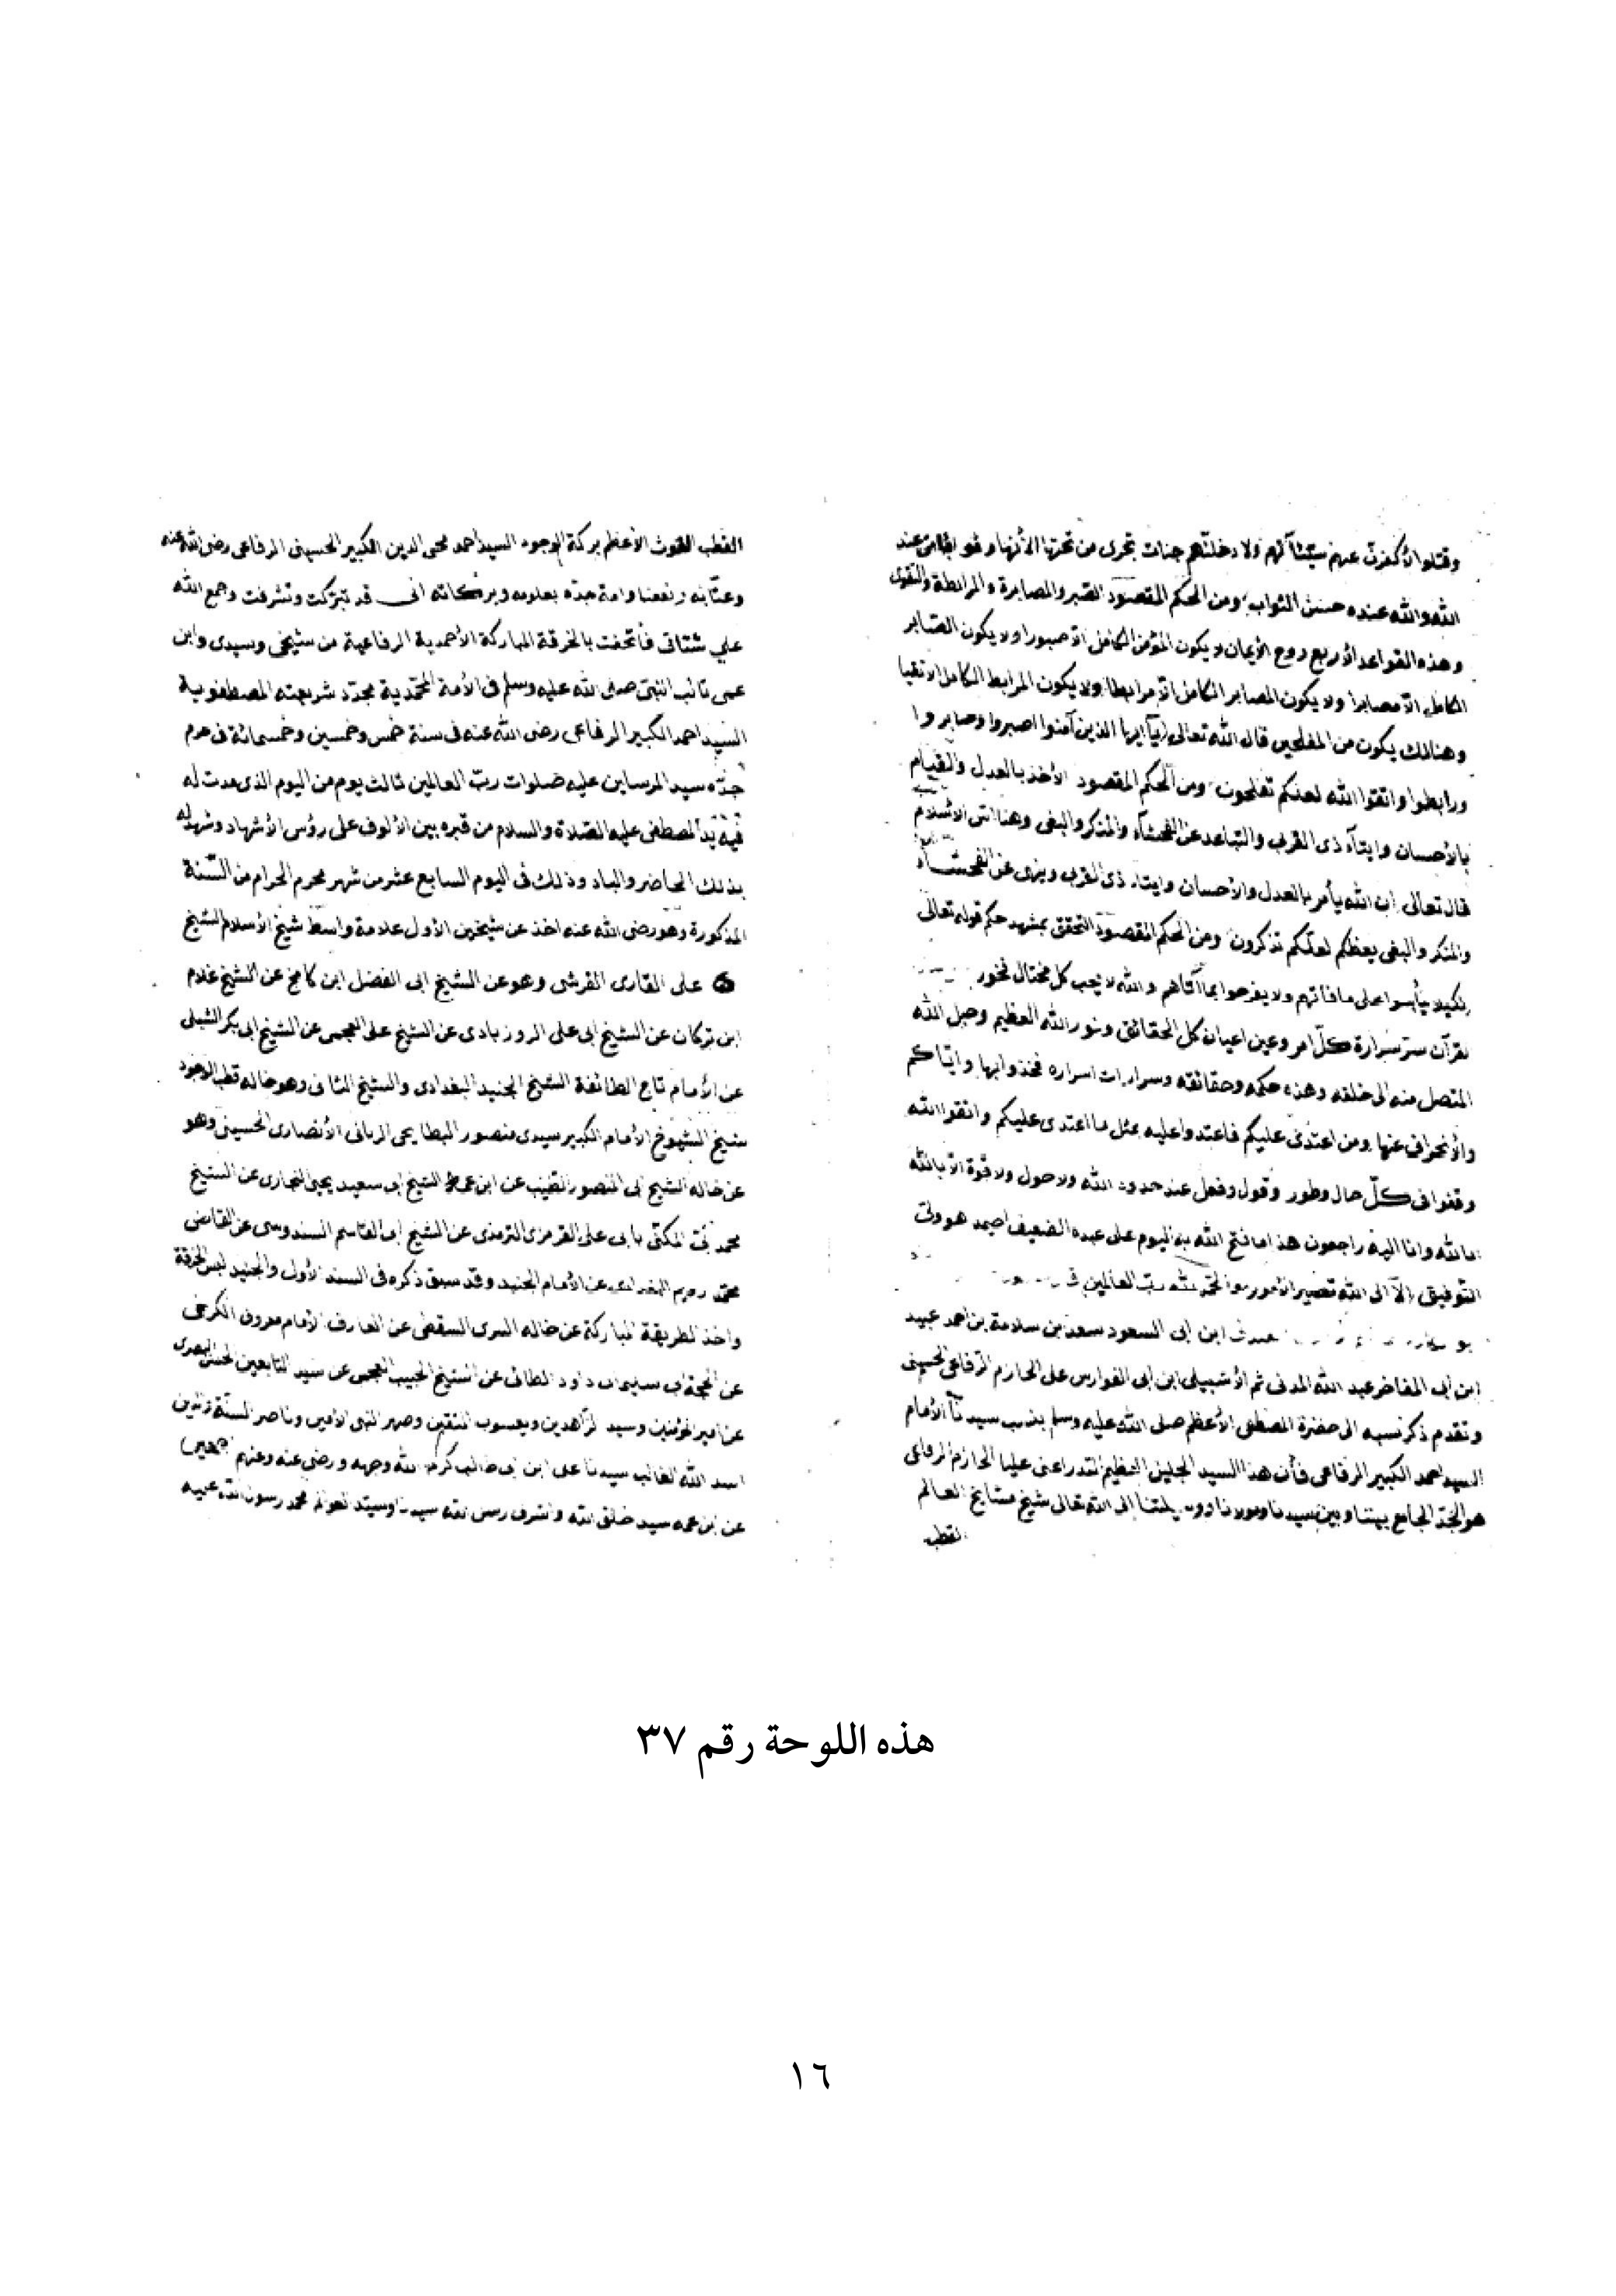 وقتلوا لأكفرن عنهم سيئاتهم ولادخلنهم جنات تجرى من تحتها الأنهار ثوابا من عند
الله والله عنده حسن الثواب ومن الحكم المقصود الصبر والمصابرة والمرابطة والتقوى
وهذه القواعد الأربع روح الأيمان ولا يكون المؤمن الكامل الا صبورا ولا يكون الصابر
الكامل الا مصابرا ولا يكون المصابر الكامل الا مرابطا ولا يكون المرابط الكامل الا تقيا
وهنالك يكون من المفلحين قال الله تعالى يآ ايها الذين آمنوا اصبروا وصابروا
ورابطوا واتقوا الله لعلكم تفلحون ومن الحكم المقصود الأخذ بالعدل والقيام
بالأحسان وايتآء ذى القربى والتباعد عن الفحشآء والمنكر والبغى وهنا اس الاسلام
قال تعالى ان الله يأمر بالعدل والأحسان وايتاء ذى القربى وينهى عن الفحشاء
والمنكر والبغى يعظكم لعلكم تذكرون ومن الحكم المقصود التحقق بمشهد حكم قوله تعالى
لكيلا يأسوا على ما فاتهم ولا يفرحوا بما آتاهم والله لا يحب كل مختال فخور
لقرآن سر سرارة كل امر وعين اعيان كل الحقائق ونور الله العظيم وحبل الله
المتصل منه الى خلقه وهذه حكمه وحقائقه وسرارات اسراره فخذوا بها واياكم
والأنحراف عنها ومن اعتدى عليكم فاعتدوا عليه بمثل ما اعتدى عليكم واتقوا الله
وقفوا فى كل حال وطور وقول وفعل عند حدود الله ولا حول ولا قوة الا بالله
انا لله وانا اليه راجعون هذا ما فتح الله به اليوم على عبده الضعيف احمد هو ولى
التوفيق الآ الى الله تصير الأمور والحمد لله رب العالمين
ابن ابى السعود سعد بن سلامة بن احمد عبيد
ابن ابى المفاخر عبد الله المدنى ثم الأشبيلى ابن ابى الفوارس على الحازم الرفاعى الحسينى
وتقدم ذكر نسبه الى حضرة المصطفى الأعظم صلى الله عليه وسلم بنسب سيدنا الأمام
السيد احمد الكبير الرفاعى فأن هذا السيد الجليل العظيم القدر اعنى عليا الحازم الرفاعى
هو الجد الجامع بيننا وبين سيدنا ومولانا ووسيلتنا الى الله تعالى شيخ مشايخ العالم
القطب
القطب الغوث الأعظم بركة الوجود السيد احمد محى الدين الكبير الحسينى الرفاعى رضى الله عنه
وعنا به ونفعنا وامة جده بعلومه وبركاته انى قد تبركت وتشرفت وجمع الله
على شتاتى فأتحفت بالخرقة المباركة الأحمدية الرفاعية من شيخى وسيدى وابن
عمى نائب النبى صلى الله عليه وسلم فى الأمة المحمدية مجدد شريعته المصطفوية
السيد احمد الكبير الرفاعى رضى الله عنه فى سنة خمس وخمسين وخمسمائة فى حرم
جده سيد المرسلين عليه صلوات رب العالمين ثالث يوم من اليوم الذى مدت له
فيه يد المصطفى عليه الصلاة والسلام من قبره بين الألوف على رؤس الأشهاد وشهد له
بذلك الحاضر والباد وذلك فى اليوم السابع عشر من شهر محرم الحرام من السنة
المذكورة وهو رضى الله عنه اخذ عن شيخين الأول علامة واسط شيخ الأسلام الشيخ
على القارى القرشى وهو عن الشيخ ابى الفضل ابن كامخ عن الشيخ غلام
ابن تركان عن الشيخ ابى على الروزبادى عن الشيخ على العجمى عن الشيخ ابى بكر الشبلى
عن الأمام تاج الطائفة الشيخ الجنيد البغدادى والشيخ الثانى وهو خاله قطب الوجود
شيخ الشيوخ الأمام الكبير سيدى منصور البطايحى الربانى الأنصارى الحسينى وهو
عن خاله الشيخ ابى المنصور الطيب عن ابن عمه الشيخ ابى سعيد يحيى النجارى عن الشيخ
المكنى بابى على القرمزى الترمذى عن الشيخ ابى القاسم السندوسى عن القاضى
محمد رويم البغدادى عن الأمام الجنيد وقد سبق ذكره فى السند الأول والجنيد لبس الخرقة
واخذ الطريقة المباركة عن خاله السرى السقطى عن العارف الأمام معروف الكرخى
عن الحجة ابى سليمان داود الطائى عن الشيخ الحبيب العجمى عن سيد التابعين الحسن البصرى
عن امير المؤمنين وسيد الزاهدين ويعسوب المتقين وصهر النبى الأمين وناصر السنة والدين
اسد الله الغالب سيدنا على ابن ابى طالب كرم الله وجهه ورضى عنه وعنهم اجمعين
عن ابن عمه سيد خلق الله واشرف رسل الله سيدنا وسيد العوالم محمد رسول الله عليه
هذه اللوحة رقم ٣٧
١٦